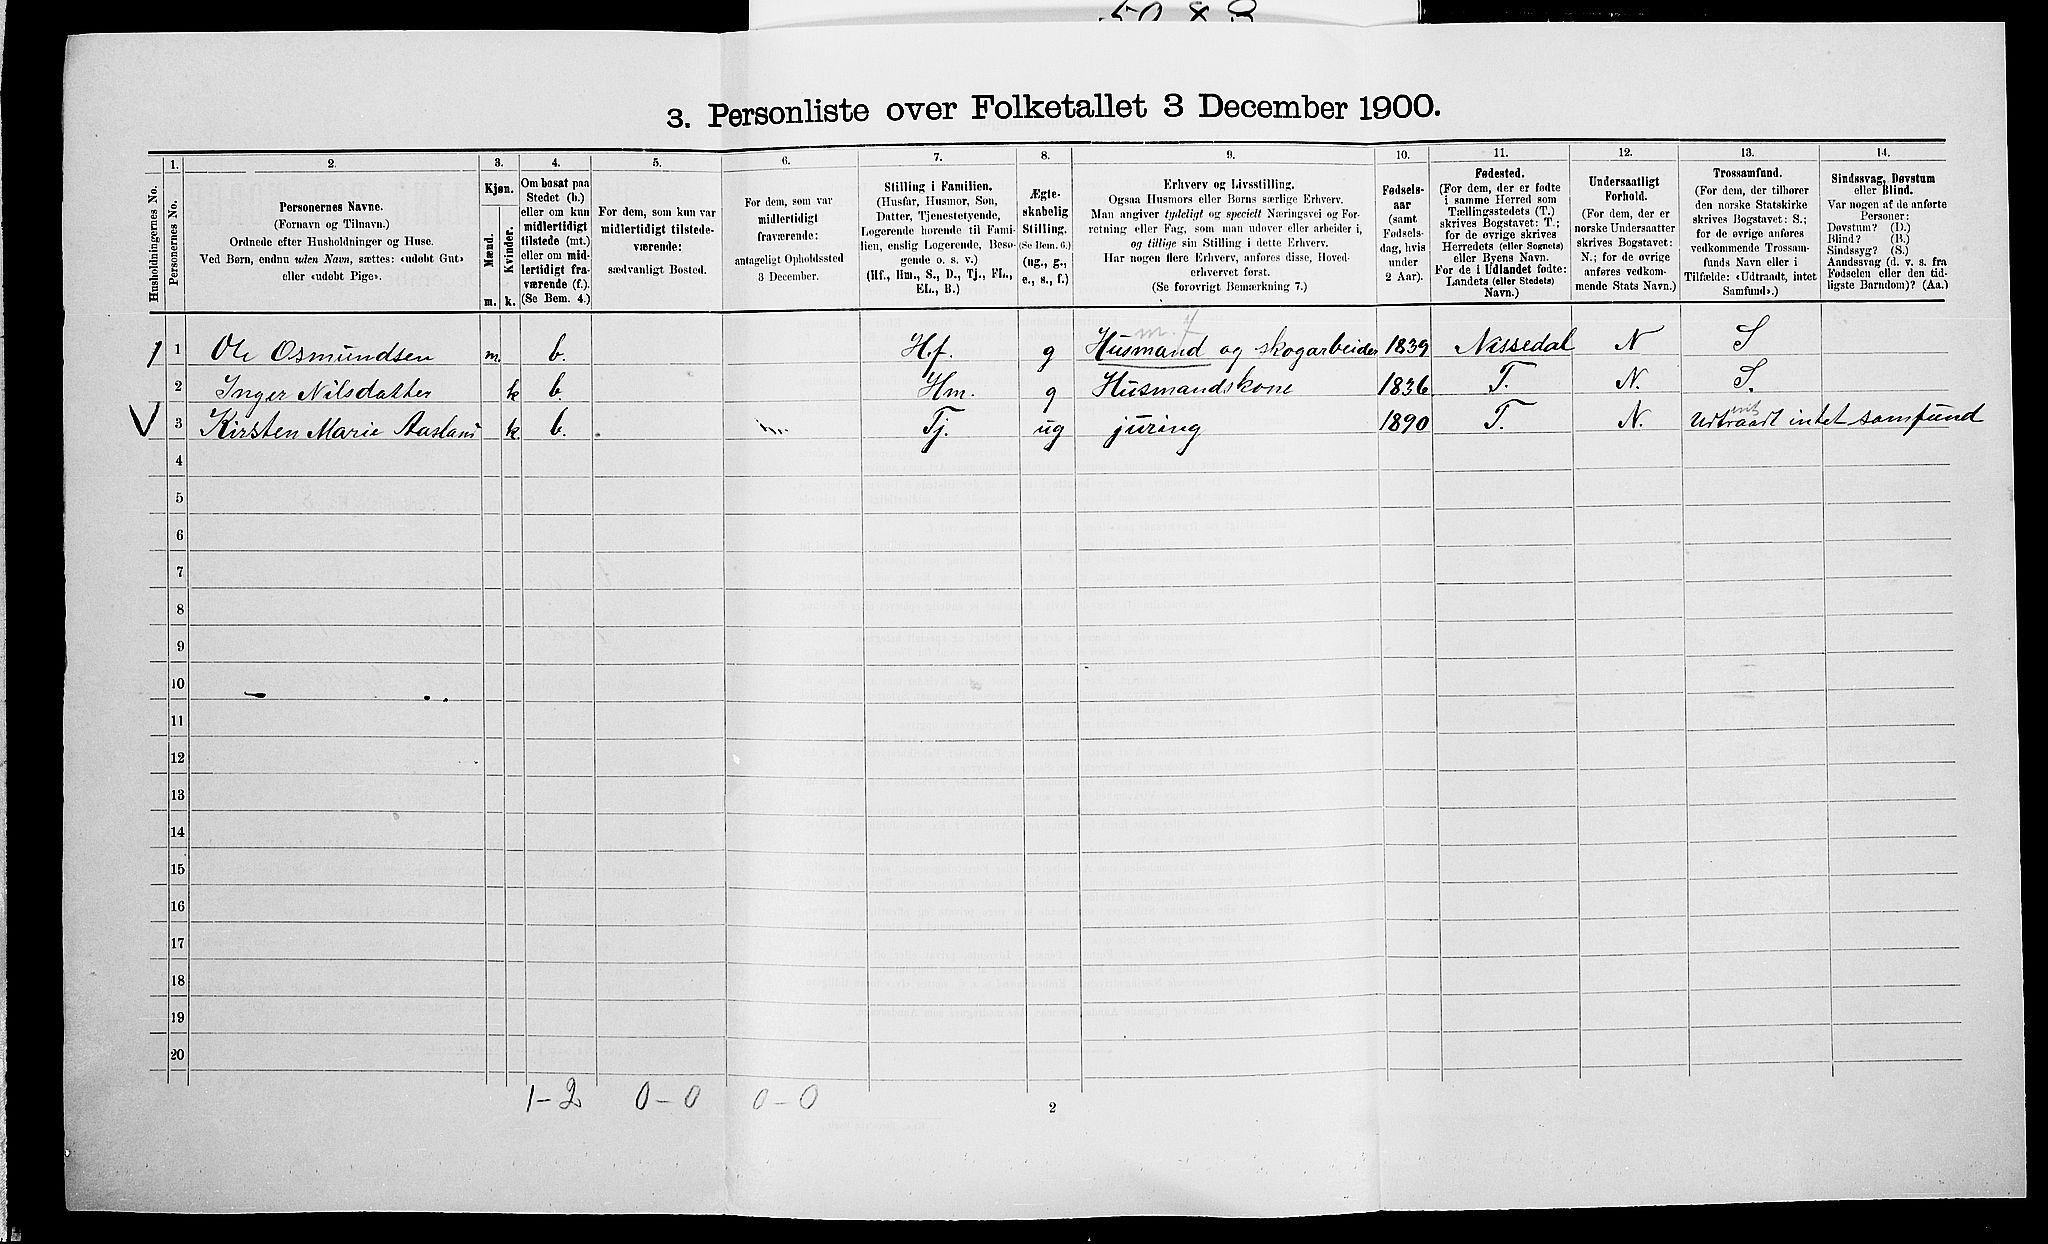 3. Personliste over Folketallet 3 December 1900.
Husholdningernes No.
1.
Personernes No.
2.
Personernes Navne.
(Fornavn og Tilnavn.)
Ordnede efter Husholdninger og Huse.
Ved Børn, endnu uden Navn, sættes: «udøbt Gut»
eller «udøbt Pige».
3.
Kjøn.
Mænd.
Kvinder.
m.
k.
4.
Om bosat paa
Stedet (b.)
eller om kun
midlertidigt
tilstede (mt.)
eller om mid-
lertidigt fra-
værende (f.).
(Se Bem. 4.)
5.
For dem, som kun var
midlertidigt tilstede-
værende:
sædvanligt Bosted.
6.
For dem, som var
midlertidigt
fraværende:
antageligt Opholdssted
3 December.
7.
Stilling i Familien.
(Husfar, Husmor, Søn,
Datter, Tjenestetyende,
Logerende hørende til Fami-
lien, enslig Logerende, Besø-
gende o. s. v.)
(Hf., Hm., S., D., Tj., FL.,
EL., B.)
8.
Ægte-
skabelig
Stilling.
(Se Bem. 6.)
(ug., g.,
e., s., f.)
9.
Erhverv og Livsstilling.
Ogsaa Husmors eller Børns særlige Erhverv.
Man angiver tydeligt og specielt Næringsvei og For-
retning eller Fag, som man udøver eller arbeider i,
og tillige sin Stilling i dette Erhverv.
Har nogen flere Erhverv, anføres disse, Hoved-
erhvervet først.
(Se forøvrigt Bemærkning 7.)
10.
Fødsels-
aar
(samt
Fødsels-
dag, hvis
under
2 Aar).
11.
Fødested.
(For dem, der er fødte
i samme Herred som
Tællingsstedets (T.)
skrives Bogstavet: T.;
for de øvrige skrives
Herredets (eller Sognets)
eller Byens Navn.
For de i Udlandet fødte:
Landets (eller Stedets)
Navn.)
12.
Undersaatligt
Forhold.
(For dem, der er
norske Undersaatter
skrives Bogstavet:
N.; for de øvrige
anføres vedkom-
mende Stats Navn.)
13.
Trossamfund.
(For dem, der tilhører
den norske Statskirke
skrives Bogstavet: S.;
for de øvrige anføres
vedkommende Trossam-
funds Navn eller i
Tilfælde: «Udtraadt, intet
Samfund».)
14.
Sindssvag, Døvstum
eller Blind.
Var nogen af de anførte
Personer:
Døvstum? (D.)
Blind? (B.)
Sindssyg? (S.)
Aandssvag (d. v. s. fra
Fødselen eller den tid-
ligste Barndom)? (Aa.)
m. 7
1 1 Ole Osmundsen m. b. H.f. g Husmand og skogarbeider 1839 Nissedal N S
2 Inger Nilsdatter k b. Hm. g Husmandskone 1836 T. N. S.
V 3 Kirsten Marie Aasland k. b. Tj. ug juring 1890 T. N. Udtraadt intet samfund
4
5
6
7
8
9
10
11
12
13
14
15
16
17
18
19
20
1-2 0-0 0-0
2